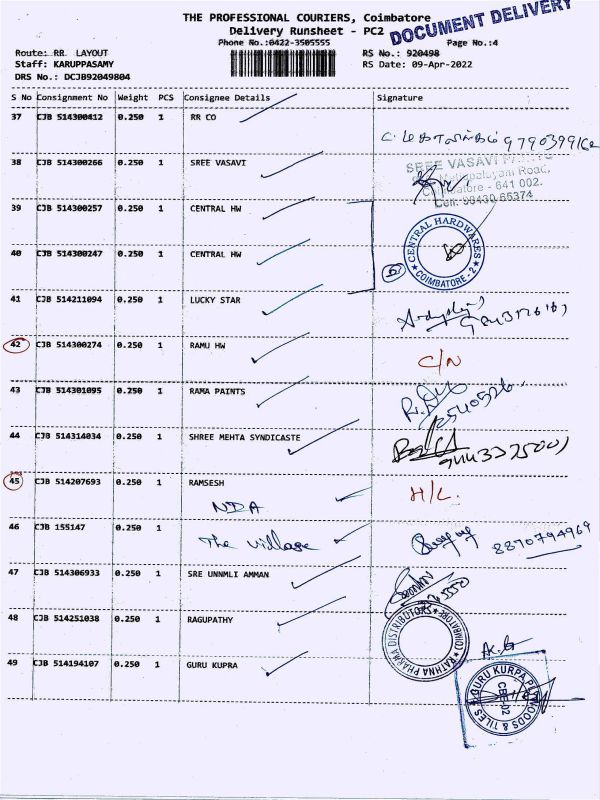 THE PROFESSIONAL COURIERS, Coimbatore
Delivery Runsheet - PC2
DOCUMENT DELIVERY
Phone No.:0422-3505555 Page No.:4
Route: RR LAYOUT RS No.: 920498
Staff: KARUPPASAMY RS Date: 09-Apr-2022
DRS No.: DCJB92049804
S No Consignment No Weight PCS Consignee Details Signature
37 CJB 514300412 0.250 1 RR CO
38 CJB 514300266 0.250 1 SREE VASAVI
SREE VASAVI
Road,
Coimbatore - 641 002.
Cell: 98430 65374
39 CJB 514300257 0.250 1 CENTRAL HW
40 CJB 514300247 0.250 1 CENTRAL HW
CENTRAL HARDWARES
COIMBATORE - 2
41 CJB 514211094 0.250 1 LUCKY STAR
42 CJB 514300274 0.250 1 RAMU HW C/N
43 CJB 514301095 0.250 1 RAMA PAINTS
2540526
44 CJB 514314034 0.250 1 SHREE MEHTA SYNDICASTE
45 CJB 514207693 0.250 1 RAMSESH H/L
NDA
46 CJB 155147 0.250 1 The village 8870794969
47 CJB 514306933 0.250 1 SRE UNNMLI AMMAN
48 CJB 514251038 0.250 1 RAGUPATHY
RATHNA PHARMA DISTRIBUTORS COIMBATORE
49 CJB 514194107 0.250 1 GURU KUPRA
GURU KURPA PLYWOODS & TILES
CBE-02